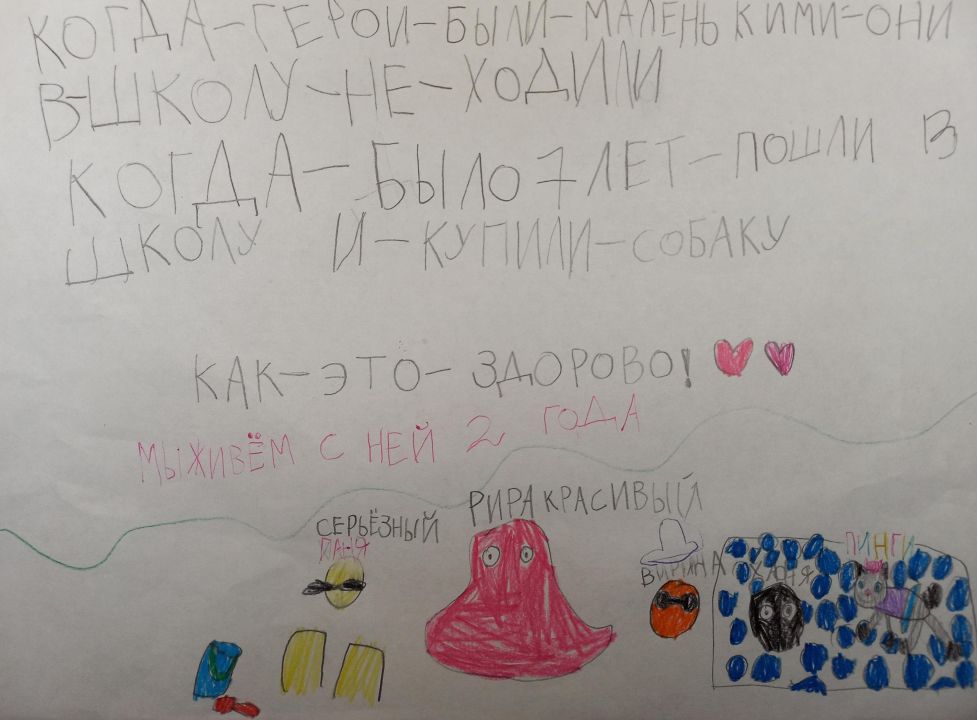 КОГДА-ГЕРОИ-БЫЛИ-МАЛЕНЬКИМИ-ОНИ
В-ШКОЛУ-НЕ-ХОДИЛИ
КОГДА-БЫЛО 7 ЛЕТ-ПОШЛИ В
ШКОЛУ И-КУПИЛИ-СОБАКУ
КАК-ЭТО-ЗДОРОВО!
МЫ ЖИВЁМ С НЕЙ 2 ГОДА
РИРА КРАСИВЫЙ
СЕРЬЁЗНЫЙ
ПАНЯ
ПИНГИ